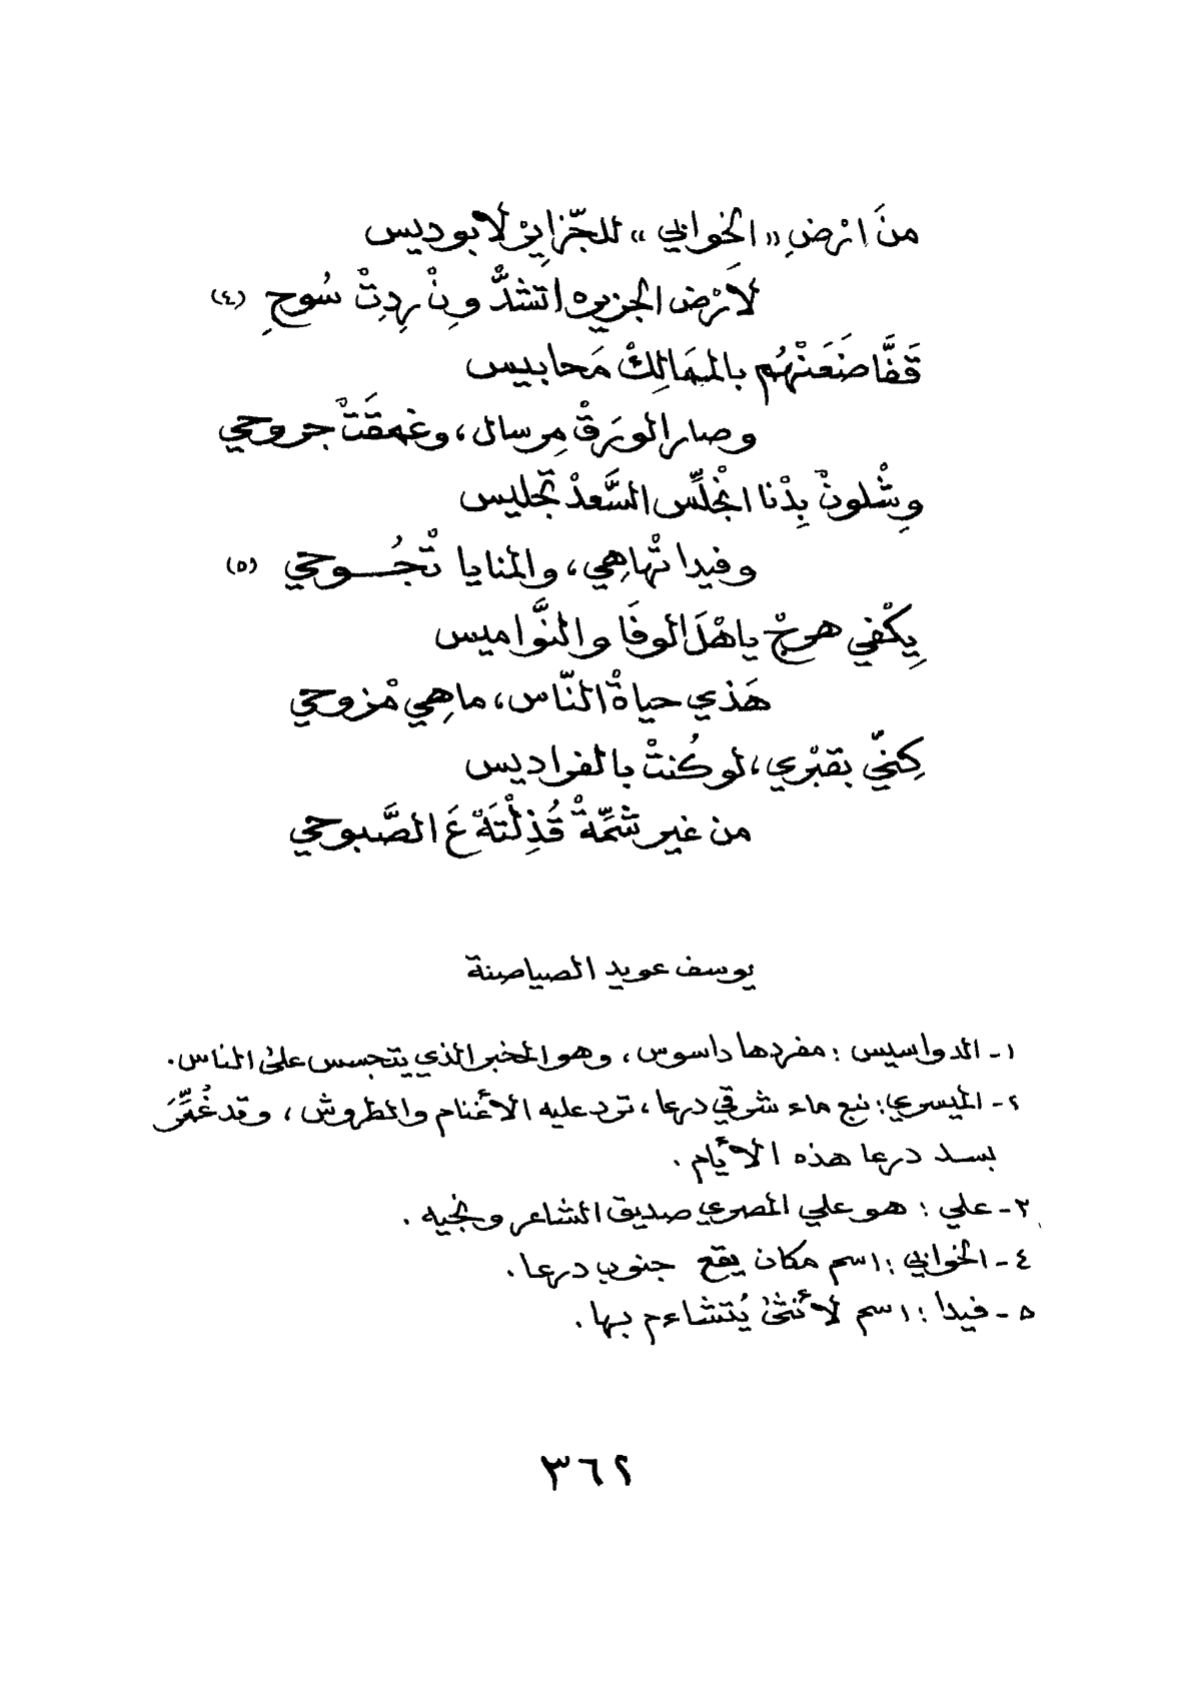 منَ ارْضِ «الخوابي» للجّزايِرْ لابوديس
لاَرْض الجزيره اتشدّْ ونْ رِدِتْ سُوحِ (٤)
قَفَّا ضَعَنْهُم بالمَمَالِكْ مَحابيس
وصار الورَقْ مِرسال، وغمقَتْ جروحي
وِشْلونْ بِدْنا انْجْلِّس السَّعدْ تجليس
وفيدا تْهاهِي، والمنايا تْجُوحي (٥)
يِكْفي هرجْ ياهْلَ الوفَا والنَّواميس
هَذي حياةْ النّاس، ماهِي مْزوحي
كِنّي بقبْري، لو كُنتْ بالفراديس
من غير شمِّةْ قُذِلْتَهْ عَ الصَّبوحي
يوسف عويد الصياصنة
١- الدواسيس : مفردها داسوس، وهو المخبر الذي يتجسس على الناس.
٢- الميسري: نبع ماء شرقي درعا، ترد عليه الأغنام والطروش، وقد غُمِّرَ
بسد درعا هذه الأيام.
٣- علي : هو علي المصري صديق الشاعر ونجيه.
٤- الخوابي : اسم مكان يقع جنوب درعا.
٥- فيدا : اسم لأنثىٰ يُتشاءم بها.
٣٦٢